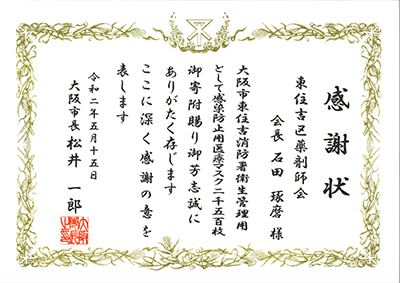 感謝状
東住吉区薬剤師会
会長 石田 琢磨 様
大阪市東住吉消防署衛生管理用
として感染防止用医療マスク二千五百枚
御寄附賜り御芳志誠に
ありがたく存じます
ここに深く感謝の意を
表します
令和二年五月十五日
大阪市長 松井 一郎